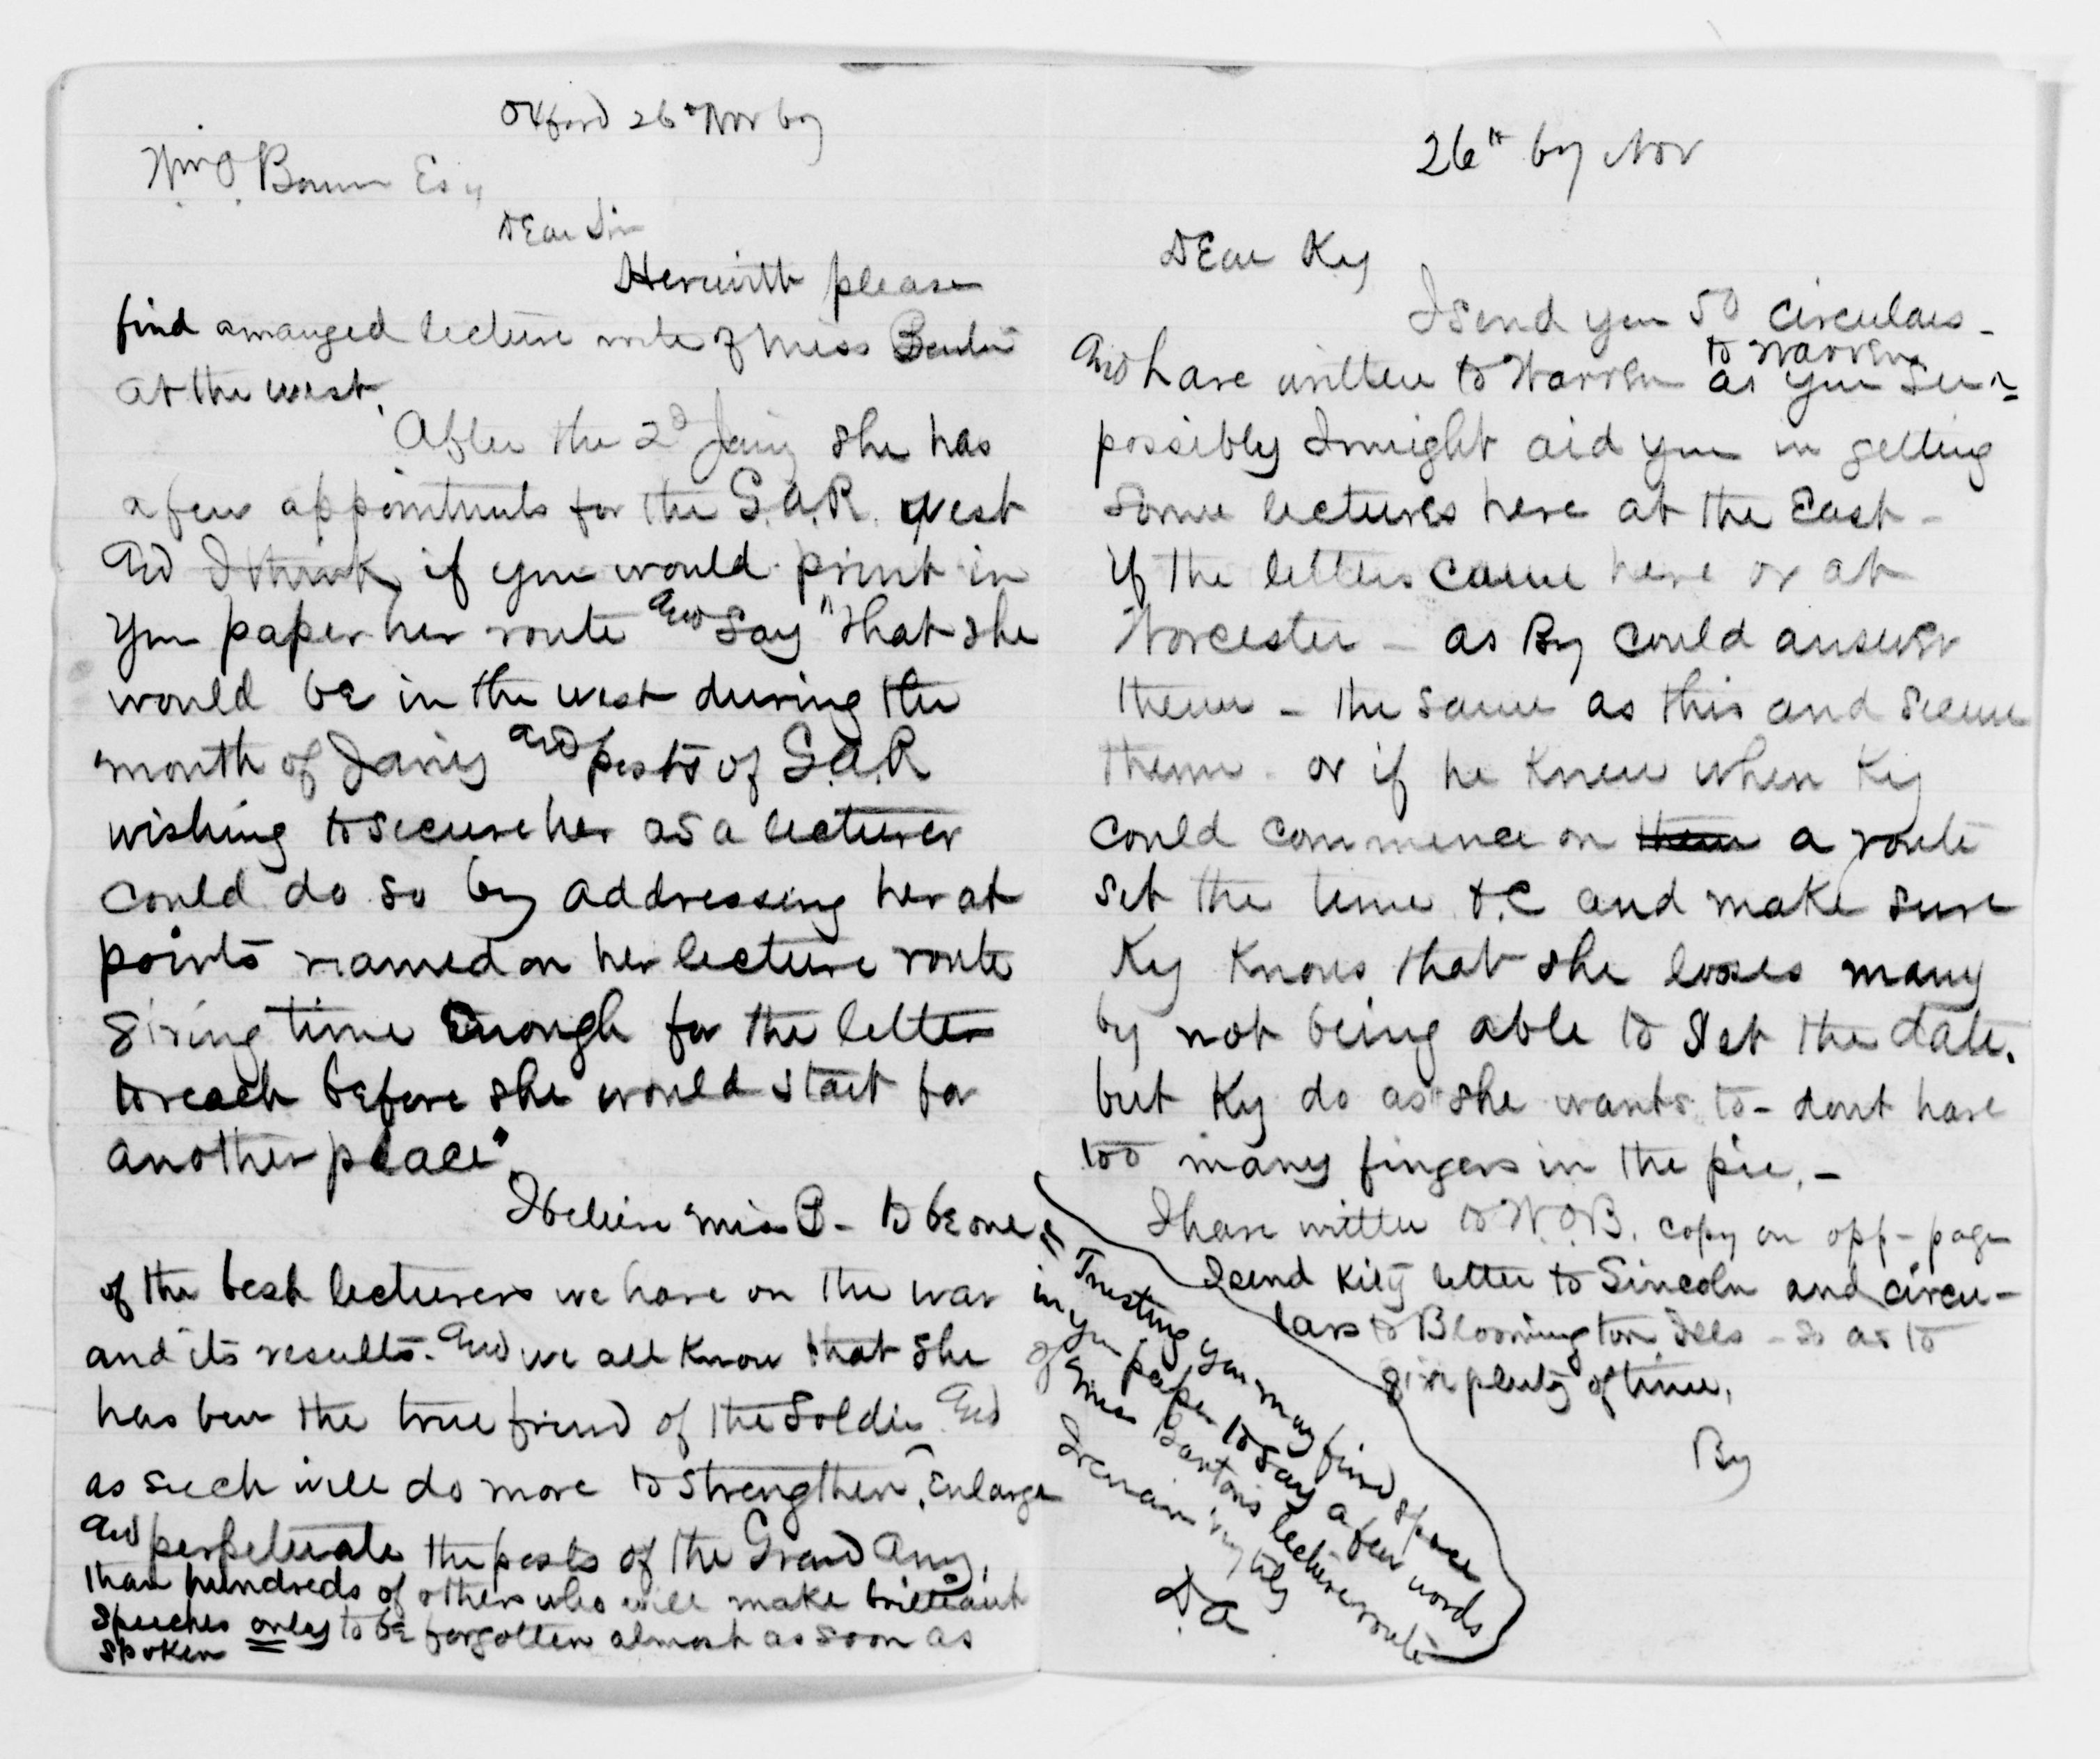 Oxford 26th Nov 67
Wm O Bourn Esq
Dear Sir
Herewith please
find arranged lecture route of Miss Barton
at the west.
After the 2d Jany she has
a few appointments for the G.A.R. west
and I think if you would print in
you paper her route and say "that she
would be in the west during the
month of Jany and posts of G.A.R
wishing to secure her as a lecturer
could do so by addressing her at
points named on her lecture route
giving time Enough for the letter
to reach before she would start for
another place".
I believe miss B - to be one
of the best lecturers we have on the war
and its results. and we all know that she
has been the true friend of the Soldier and
as such will do more to strengthen, Enlarge
and perpetuate the posts of the Grand Army,
than hundreds of others who will make brilliant
speeches only to be forgotten almost as soon as
spoken
Trusting you may find space
in you paper to say a few words
of Miss Barton's lecture route
I remain my tly
D. A.
26th 67 Nov
Dear Ky
I send you 50 circulars -
and have written to Warren as you see
to Warren
possibly I might aid you in getting
some lectures here at the East -
if the letters came here or at
Worcester - as By could answer
them - the same as this and secure
them - or if he knew when Ky
could commence on them a route
set the time &.C and make sure
Ky knows that she looses many
by not being able to set the date.
but Ky do as she wants to - dont have
too many fingers in the pie. -
I have written to W.O.B. copy on opp- page
I send Kity letter to Lincoln and circu-
lars to Bloomington Ills - so as to
give plenty of time.
By